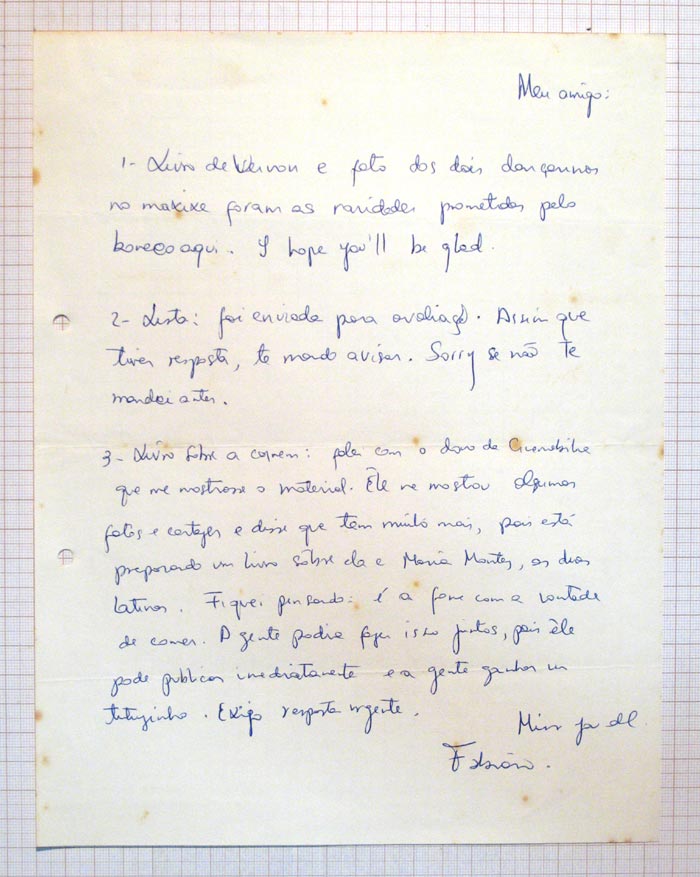 Meu amigo:
1- Livro de Vernon e foto dos dois dançarinos
no maxixe foram as raridades prometidas pelo
boneco aqui. I hope you'll be glad.
2- Lista: foi enviada para avaliação. Assim que
tiver resposta, te mando avisar. Sorry se não te
mandei antes.
3- Livro sobre a carmem: falei com o dono da
que me mostrasse o material. Êle me mostrou algumas
fotos e cartazes e disse que tem muito mais, pois está
preparando um livro sôbre ela e Maria Montez, as duas
latinas. Fiquei pensando: é a fome com a vontade
de comer. A gente podia fazer isso juntos, pois êle
pode publicar imediatamente e a gente ganhar um
tutuzinho. Exijo resposta urgente.
Miss you all.
Fabiano.